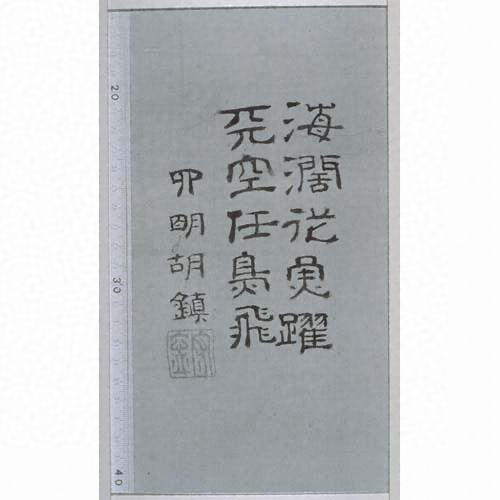 海濶從魚躍
天空任鳥飛
四明胡鎮
20
30
40